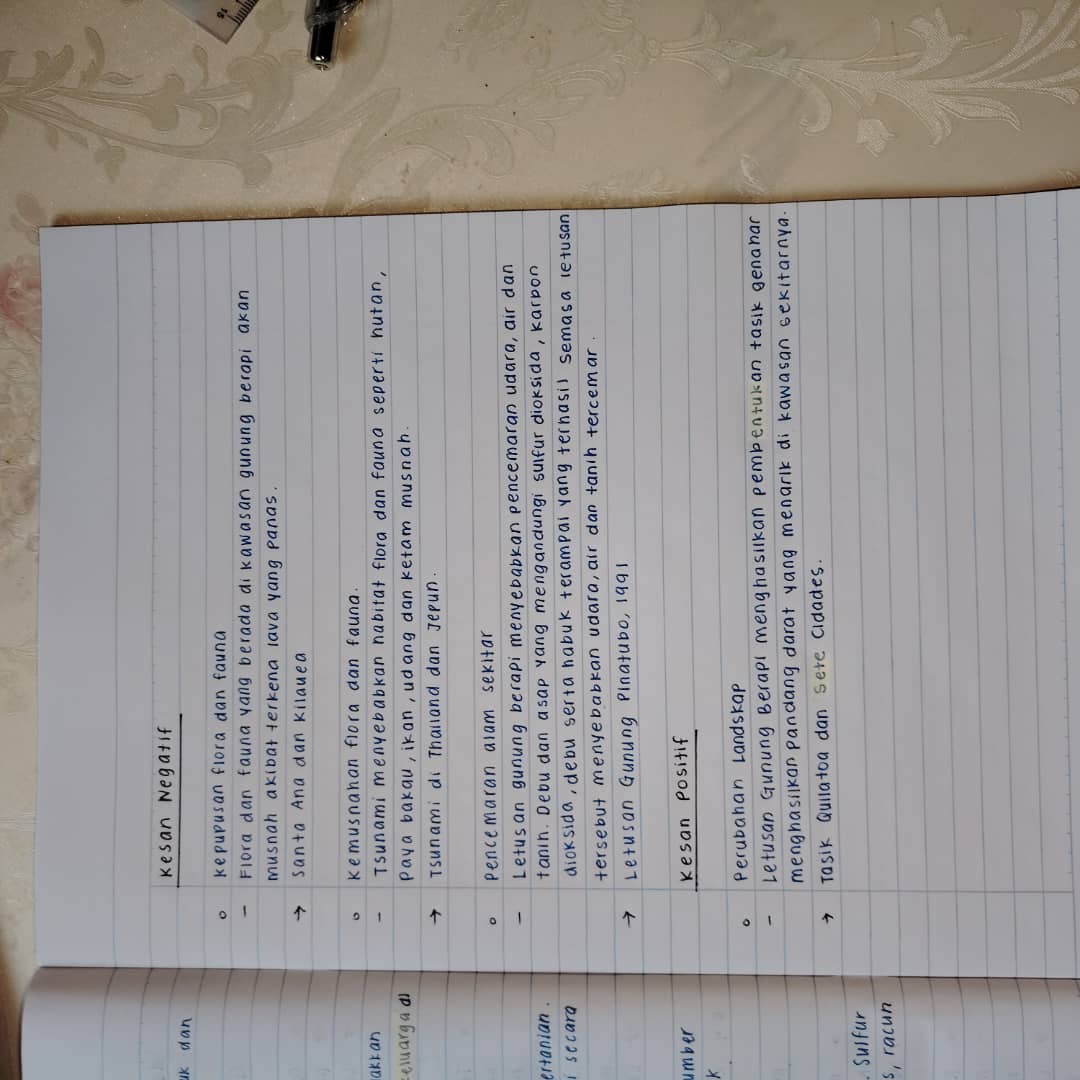 Kesan Negatif
o Kepupusan flora dan fauna
- Flora dan fauna yang berada di kawasan gunung berapi akan
musnah akibat terkena lava yang panas.
→ Santa Ana dan Kilauea
o Kemusnahan flora dan fauna.
- Tsunami menyebabkan habitat flora dan fauna seperti hutan,
paya bakau, ikan, udang dan ketam musnah.
→ Tsunami di Thailand dan Jepun.
o Pencemaran alam sekitar
- Letusan gunung berapi menyebabkan pencemaran udara, air dan
tanih. Debu dan asap yang mengandungi sulfur dioksida, karbon
dioksida, debu serta habuk terampai yang terhasil semasa letusan
tersebut menyebabkan udara, air dan tanih tercemar.
→ Letusan Gunung Pinatubo, 1991
Kesan Positif
o Perubahan Landskap
- Letusan Gunung Berapi menghasilkan pembentukan tasik genahar
menghasilkan pandang darat yang menarik di kawasan sekitarnya.
→ Tasik Quilatoa dan Sete Cidades.
uk dan
akkan
eluarga di
ertanian.
i secara
umber
k
. Sulfur
s, racun
15